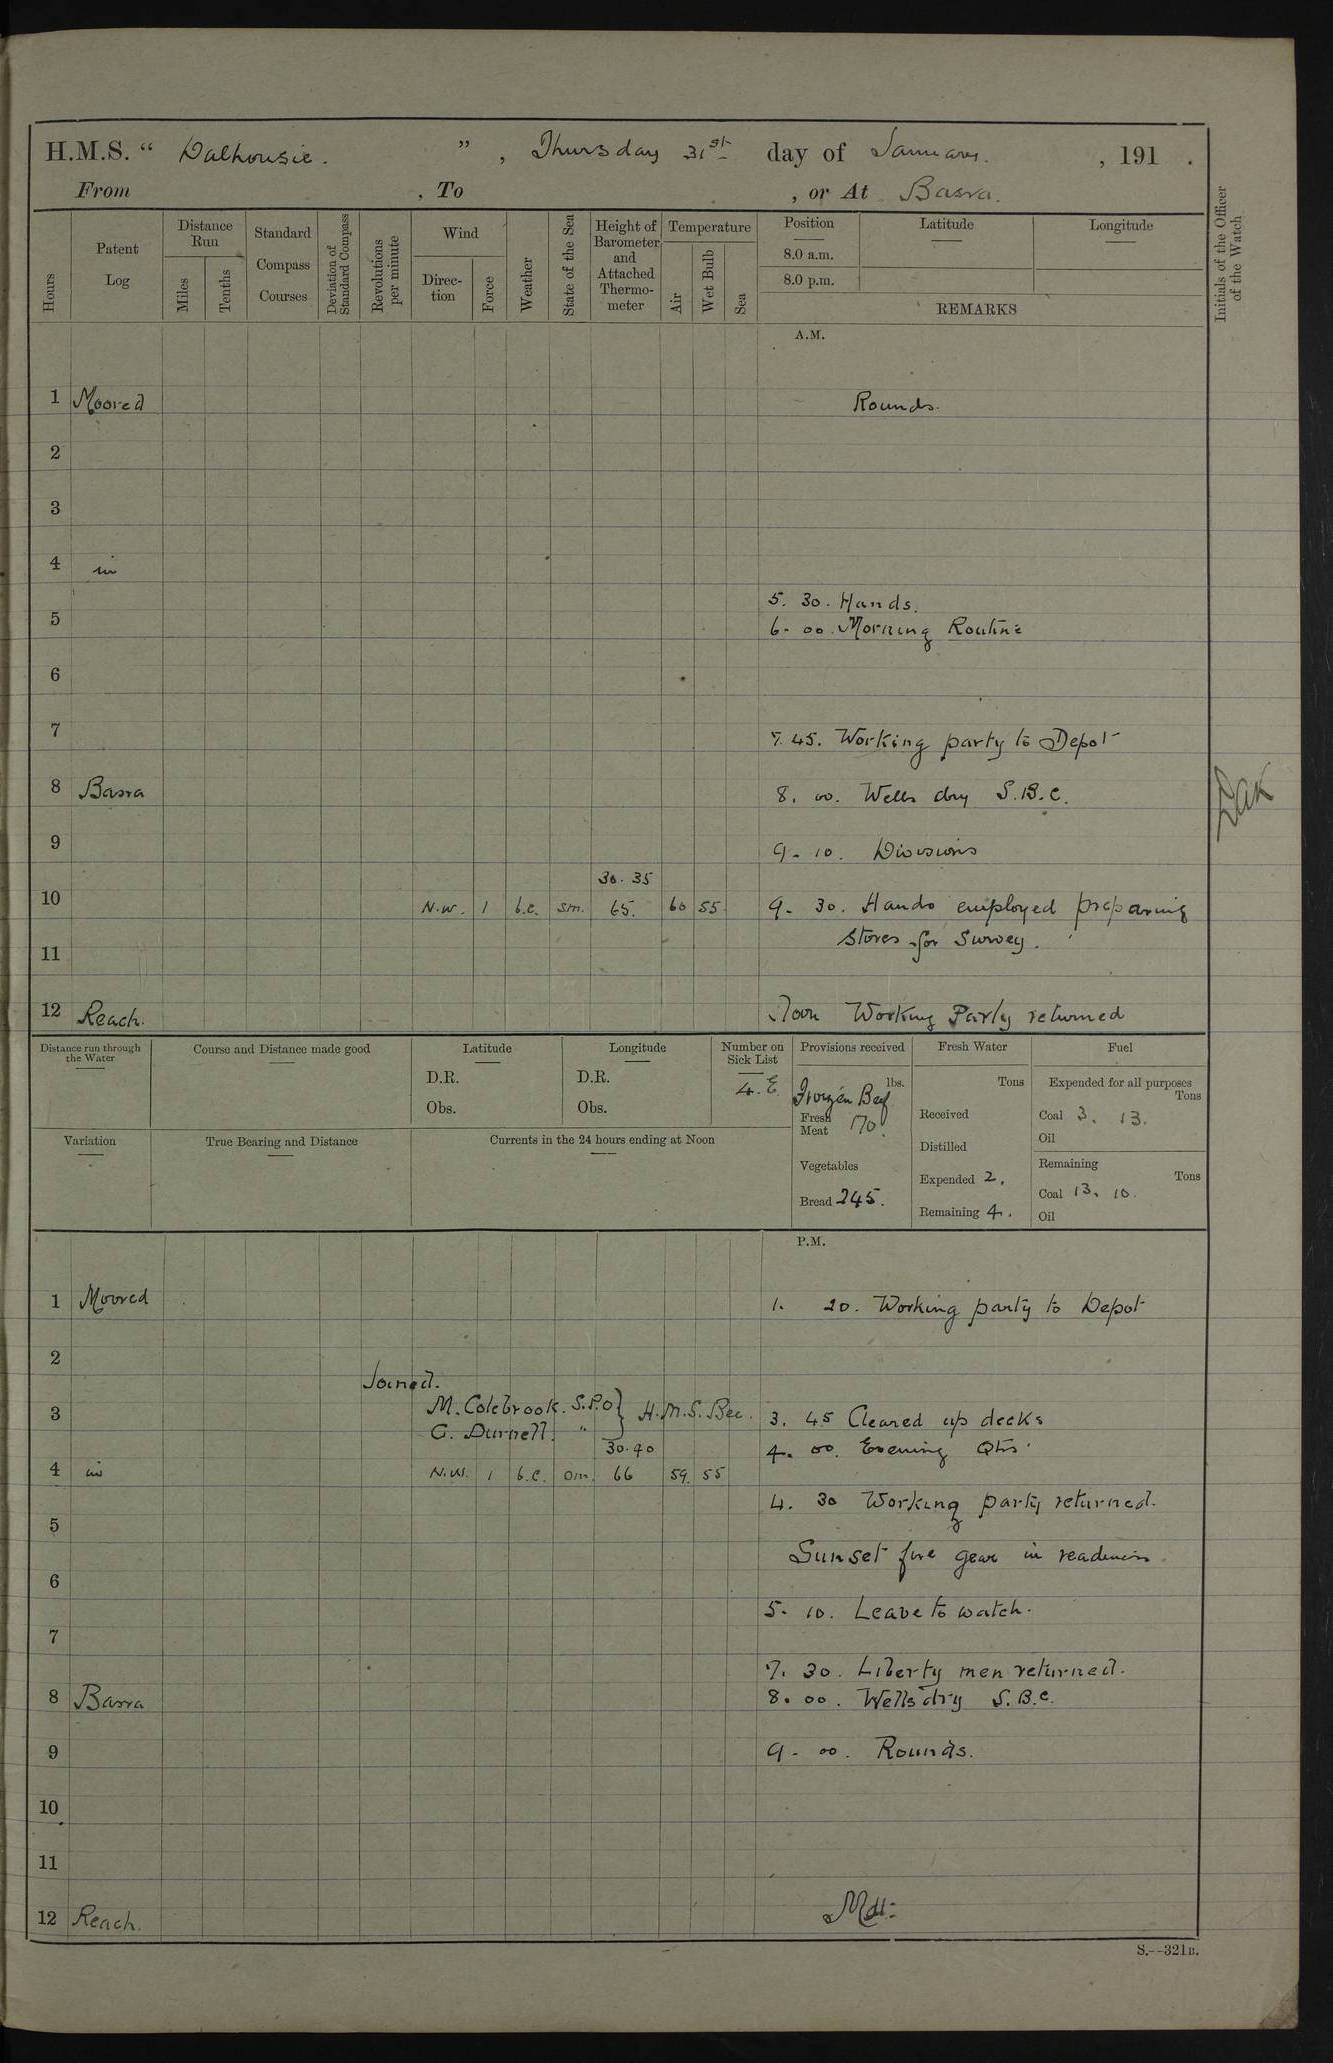 H.M.S. “ Dalhousie. ” , Thursday 31st day of January. , 191 .
From , To , or At Basra.
Hours
Patent Log
Distance Run
Miles
Tenths
Standard Compass Courses
Deviation of Standard Compass
Revolutions per minute
Wind
Direc-tion
Force
Weather
State of the Sea
Height of Barometer and Attached Thermo-meter
Temperature
Air
Wet Bulb
Sea
Position
8.0 a.m.
8.0 p.m.
Latitude
Longitude
REMARKS
Initials of the Officer of the Watch
A.M.
1 Moored Rounds.
2
3
4 in
5. 30. Hands.
5
6. 00. Morning Routine
6
7
7. 45. Working party to Depot
8 Basra 8. 00. Wells dry S.B.C.
9
9. 10. Divisions
30. 35
10 N.W. 1 b.c. sm. 65. 60 55 9. 30. Hands employed preparing
Stores for Survey.
11
12 Reach. Noon Working Party returned
Distance run through the Water
Course and Distance made good
Latitude
D.R.
Obs.
Longitude
D.R.
Obs.
Number on Sick List
4. E
Provisions received
lbs.
Frozen Beef
Fresh Meat 170.
Vegetables
Bread 245.
Fresh Water
Tons
Received
Distilled
Expended 2.
Remaining 4.
Fuel
Expended for all purposes
Tons
Coal 3. 13.
Oil
Remaining
Tons
Coal 13. 10.
Oil
Variation
True Bearing and Distance
Currents in the 24 hours ending at Noon
P.M.
1 Moored 1. 20. Working party to Depot
2
Joined.
M. Colebrook. S.P.O } H.M.S. Bee.
3 3. 45 Cleared up decks
G. Durnell. "
30.40 4. 00. Evening Qtrs.
4 in N.W. 1 b.c. sm. 66 59. 55
4. 30 Working party returned.
5
Sunset fire gear in readiness.
6
5. 10. Leave to watch.
7
7. 30. Liberty men returned.
8 Basra 8. 00. Wells dry S.B.C.
9 9. 00. Rounds.
10
11
12 Reach. Mdt:
S.—321B.